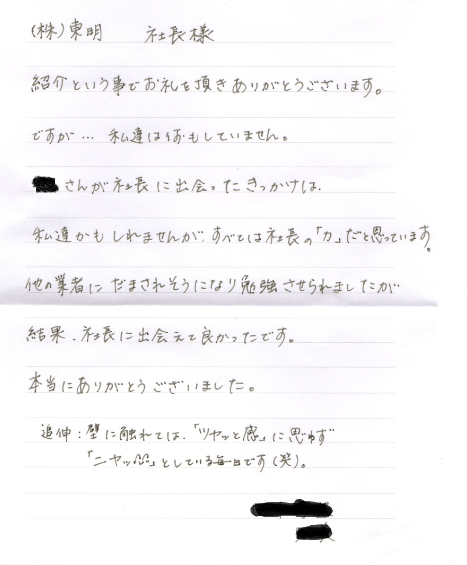 (株)東明　社長様
紹介という事でお礼を頂きありがとうございます。
ですが… 私達は何もしていません。
さんが社長に出会ったきっかけは、
私達かもしれませんが、すべては社長の「力」だと思っています。
他の業者にだまされそうになり勉強させられましたが
結果、社長に出会えて良かったです。
本当にありがとうございました。
追伸：壁に触れては、「ツヤッと感」に思わず
「ニヤッ」としている毎日です(笑)。